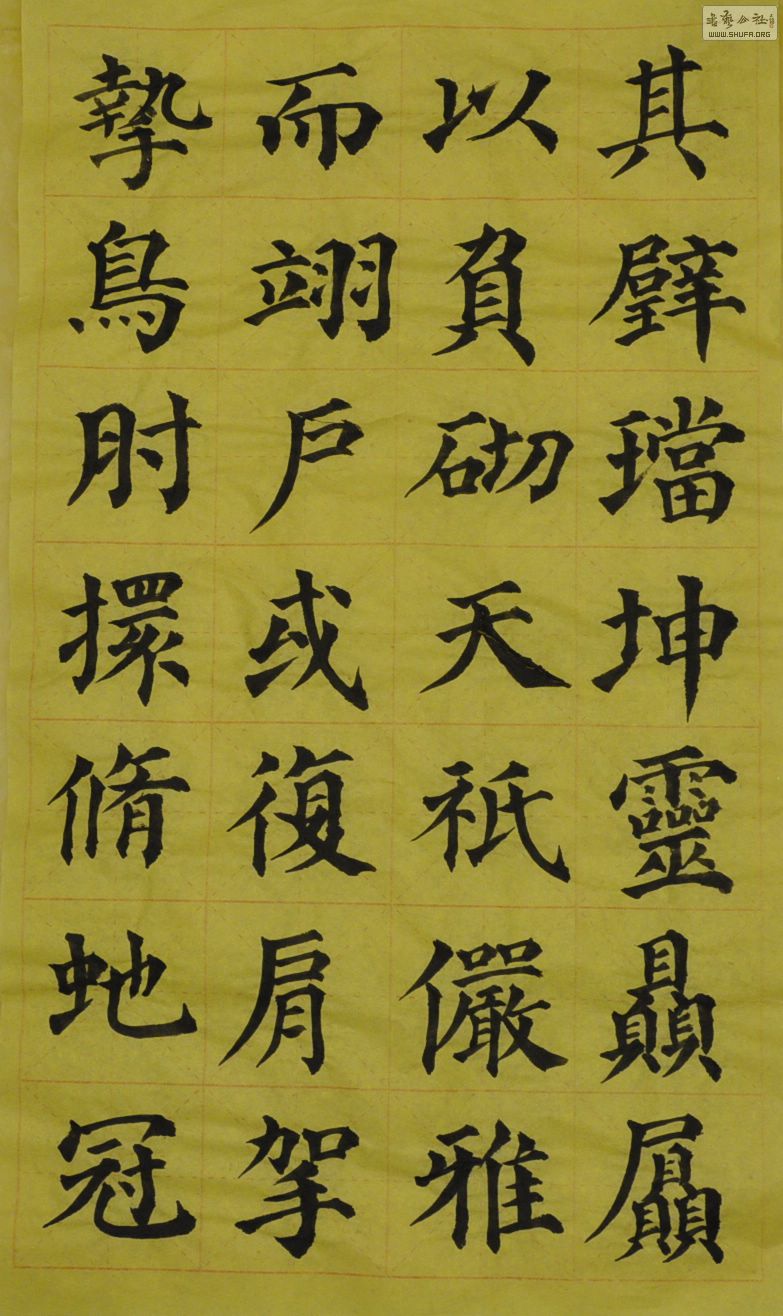 其璧璫坤靈贔屭
以負砌天祇儼雅
而翊戶或復肩挐
摯鳥肘擐脩虵冠
書藝公社
WWW.SHUFA.ORG